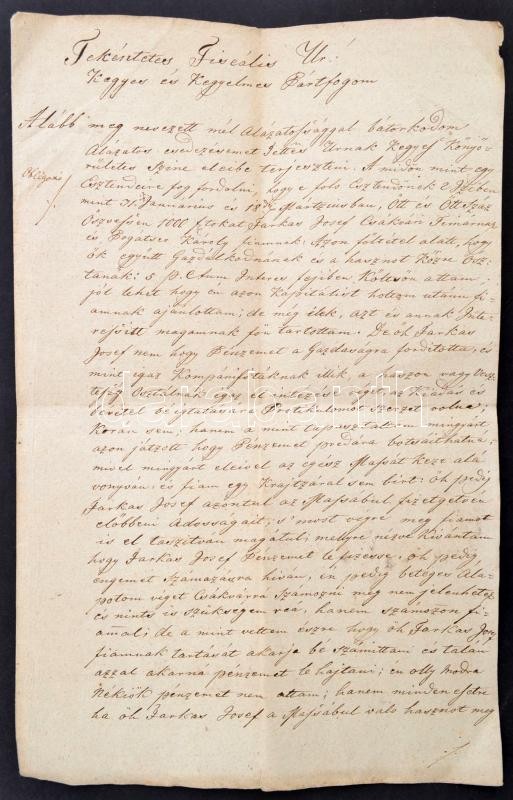 Tekéntetes Fiscális Úr!
Kegyes és Kegyelmes Pártfogom
Alább meg nevezett mél Alázatossággal bátorkodom
Alázatos esedezésemet Tettes Urnak Kegyes Könyö-
rületes Szine eleibe terjeszteni. A midőn mint egy
Obligatio
Esztendeire fog fordulni, hogy e folo Esztendőnek 2
mint 31 Januarius és 18 Mártziusban, Ött és Ött Száz
Öszvessen 1000 ftokat Farkas Josef Csákvári Timárnak
és Bogatser Károly fiamnak: Azon föltétel alatt, hogy
ők együtt Gazdálkodnának és a hasznot Közre Osz-
tanák: 5 p. Ctum Interes fejében Kölcsön attam;
jól lehet hogy én azon Kapitálist holtom utánn fi-
amnak ajánlottam; de meg élek, azt és annak Inte-
ressitt magamnak fön tartottam. De őh Farkas
Josef nem hogy Pénzemet a Gazdaságra fordította, és
mint igaz Kompanistáknak illik a haszon vagy vesz-
teség Osztálnak
bévitel bé igtatására Protikulomot Szerzet volna;
Korán sem; hanem a mint tapasztaltam mingyárt
azon játzott hogy Pénzemet prédára botsaithatná;
mivel mingyárt eleivel az egész Massát Keze alá
vonyván; és fiam egy Krajtzáral sem birt: Őh pedig
Farkas Josef azontul az Massábul fizetgetvén
előbbeni Adosságait; s' most végre meg fiamot
is el taszitván magátul; mellyre nézve Kivántam
hogy Farkas Josef Pénzemet le fizesse. Őh pedig
engemet Számozásra hiván, én pedig beteges Ála-
potom véget Csákvárra Számozni meg nem jelenhetek
és nints is szükségem rea, hanem számozon fi-
amal; de a mint vettem észre hogy őh Farkas Josef
fiamnak tartását akarja bé Számittani és talán
azzal akarná pénzemet le hajtani; én olly modra
Nékiök pénzemet nem attam; hanem minden esetre
ha őh Farkas Josef a Massábul való hasznot meg